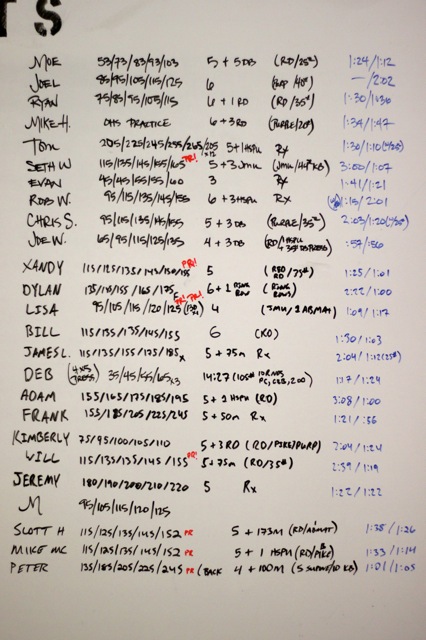 TS
MOE 53/73/83/93/103 5 + 5 DB (RD/25#) 1:24/1:12
JOEL 85/95/105/115/125 6 (RAP/40#) —/2:02
RYAN 75/85/95/105/115 6 + 1 RD (RD/35#) 1:30/1:30
MIKE H. OHS PRACTICE 6 + 3 RD (PURPLE/20#) 1:34/1:47
TOM 205/225/245/255/265/205 5 + 1 HSPU Rx 1:30/1:10
SETH W 115/135/145/155/165 PR! 5 + 3 JMU 3:00/1:07
EVAN 3 Rx 1:41/1:21
ROB W. 95/115/135/145/155 6 + 3 HSPU Rx :15/2:01
CHRIS S. 95/115/135/145/155 5 + 3 DB (PURPLE/35#) 2:03/1:20
JOE W. 65/95/115/125/135 4 + 3 DB (RD/1 HSPU :57/:56
XANDY 115/125/135/145/150/155 PR! 5 1:25/1:01
DYLAN 135/145/155/165/175 PR! 6 + 1 RING ROW (RING ROW) 2:22/1:00
LISA 95/105/115/120/125 PR! 4 (JMU/1 ABMAT) 1:09/1:17
BILL 115/135/135/145/155 6 (KO) 1:30/1:03
JAMES L. 115/135/155/175/185x 5 + 75m Rx 2:04/1:12(25#)
DEB 35/45/55/65x3 14:27 1:17/1:29
ADAM 155/165/175/185/195 5 + 2 HSPU (RD) 3:08/1:00
FRANK 155/185/205/225/245 5 + 50m Rx 1:21/:56
KIMBERLY 75/95/100/105/110 5 + 3 RD (RD/PIKE/PURP) 2:04/1:24
WILL 115/135/135/145/155 PR! 5 + 75m (RD/35#) 2:39/1:19
JEREMY 180/190/200/210/220 5 Rx 1:22/1:22
M 95/105/115/120/125
SCOTT H 115/125/135/145/152 PR 5 + 173M (RD/ABMAT) 1:38/1:26
MIKE MC 115/125/135/145/152 PR 5 + 1 HSPU (RD/PIKE) 1:33/1:14
PETER 135/185/205/225/245 PR (BACK 4 + 100M 1:01/1:05